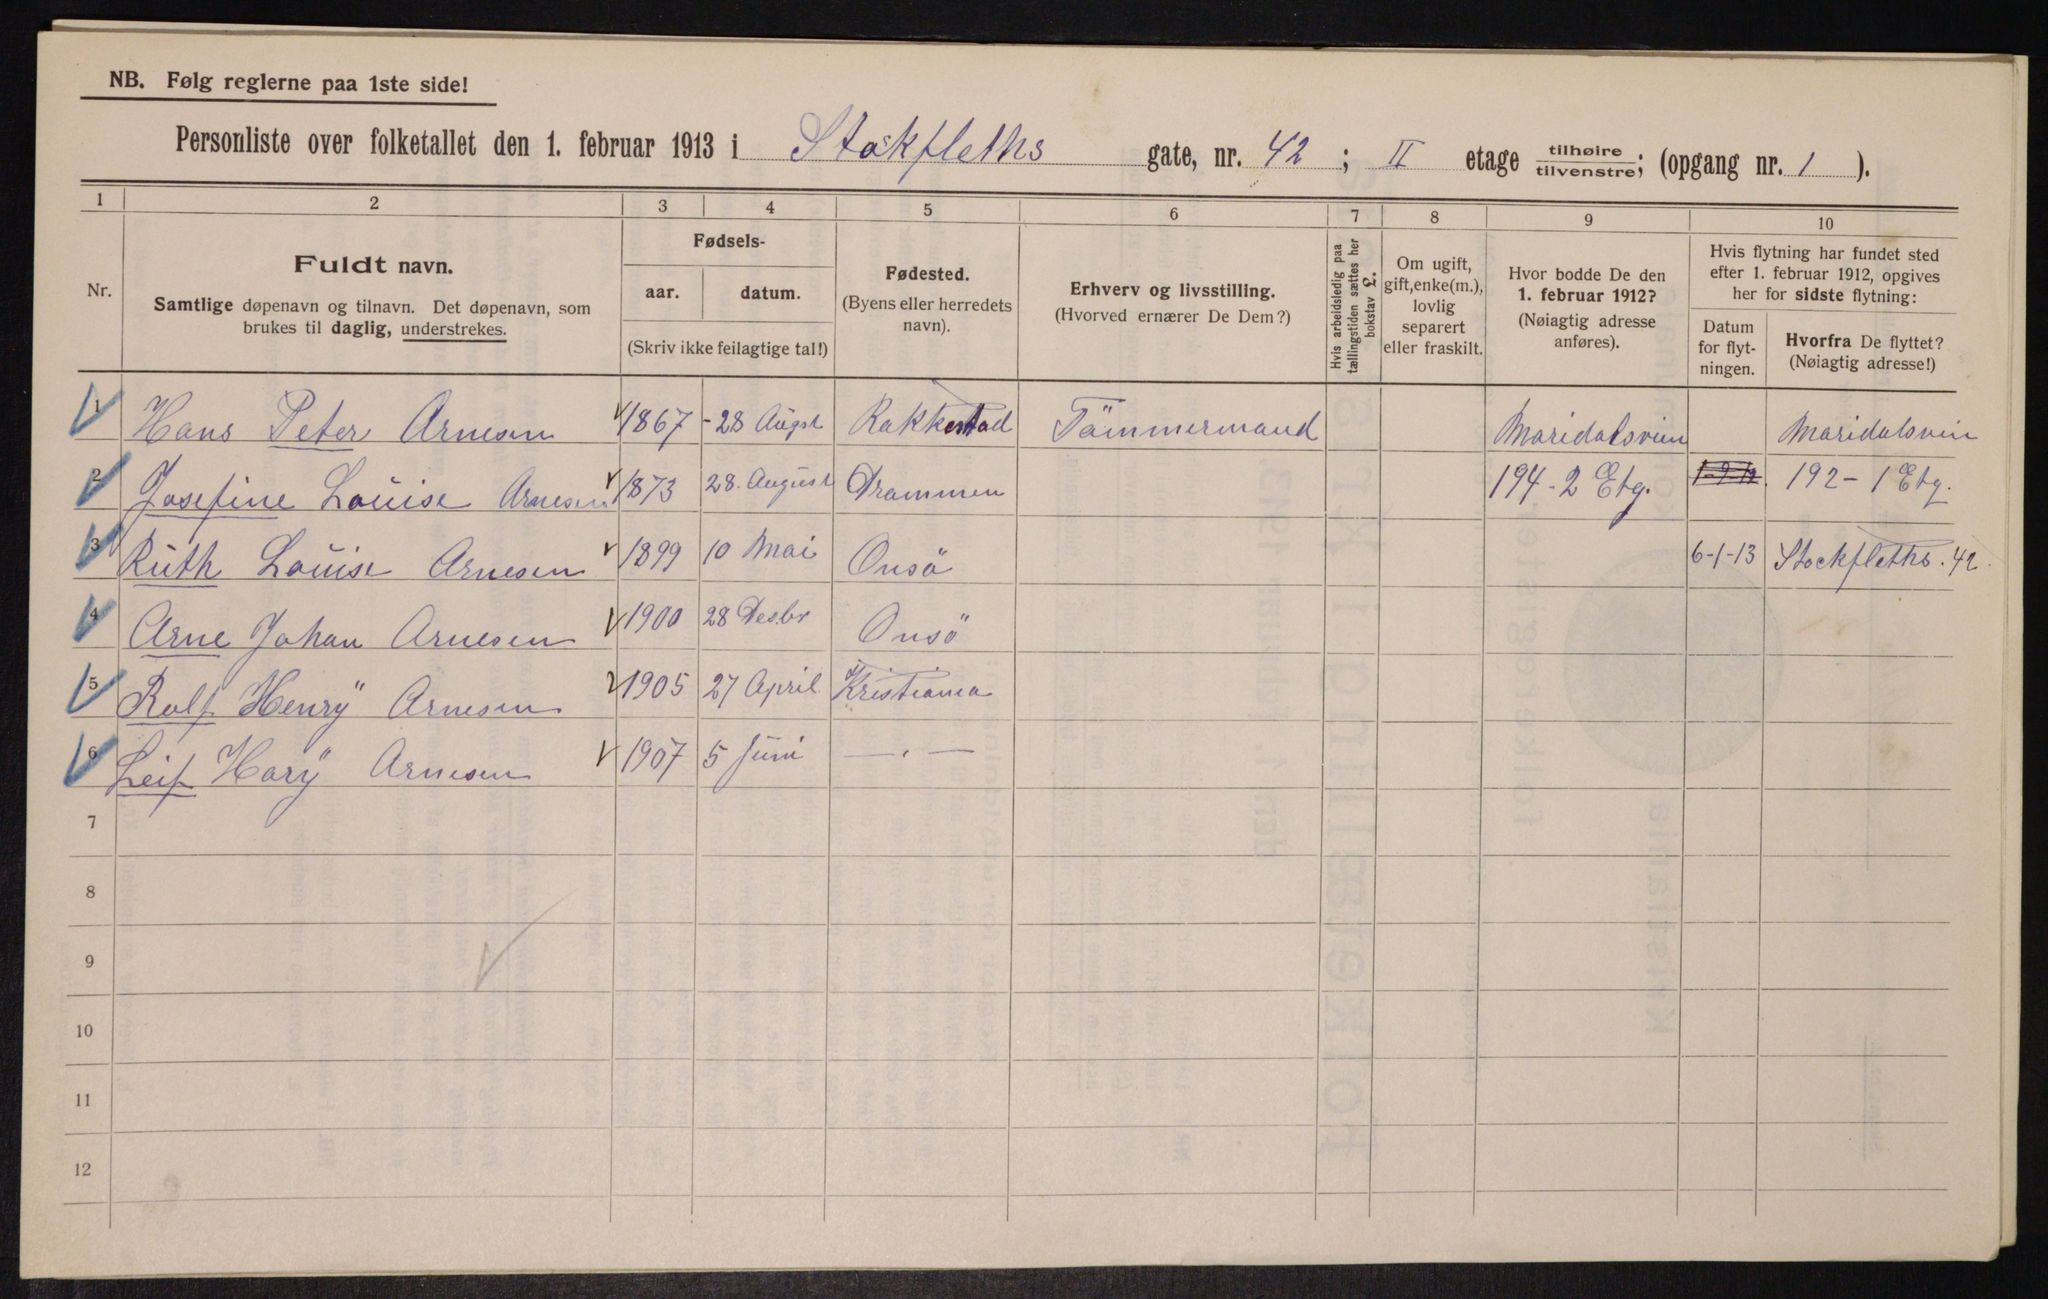 NB. Følg reglerne paa 1ste side!
Personliste over folketallet den 1. februar 1913 i Stockfleths gate, nr. 42 ; II etage tilhøire/tilvenstre; (opgang nr. 1 ).
1 2 3 4 5 6 7 8 9 10
Nr.
Fuldt navn.
Samtlige døpenavn og tilnavn. Det døpenavn, som
brukes til daglig, understrekes.
Fødsels-
aar. datum.
(Skriv ikke feilagtige tal!)
Fødested.
(Byens eller herredets
navn).
Erhverv og livsstilling.
(Hvorved ernærer De Dem?)
Hvis arbeidsledig paa
tællingstiden sættes her
bokstav £.
Om ugift,
gift, enke(m.),
lovlig
separert
eller fraskilt.
Hvor bodde De den
1. februar 1912?
(Nøiagtig adresse
anføres).
Hvis flytning har fundet sted
efter 1. februar 1912, opgives
her for sidste flytning:
Datum
for flyt-
ningen.
Hvorfra De flyttet?
(Nøiagtig adresse!)
1 Hans Peter Arnesen 1867 - 28 Augst Rakkestad Tömmermand Maridalsvein Maridalsvein
2 Josefine Louise Arnesen 1873 28. August Drammen 194 - 2 Etg. 1-9-12. 192 - 1 Etg.
3 Ruth Louise Arnesen 1899 10 Mai Onsö 6-1-13 Stockfleths. 42.
4 Arne Johan Arnesen 1900 28 Desbr Onsö
5 Rolf Henrÿ Arnesen 1905 27 April Kristiania
6 Leif Harÿ Arnesen 1907 5 Juni — . —
7
8
9
10
11
12